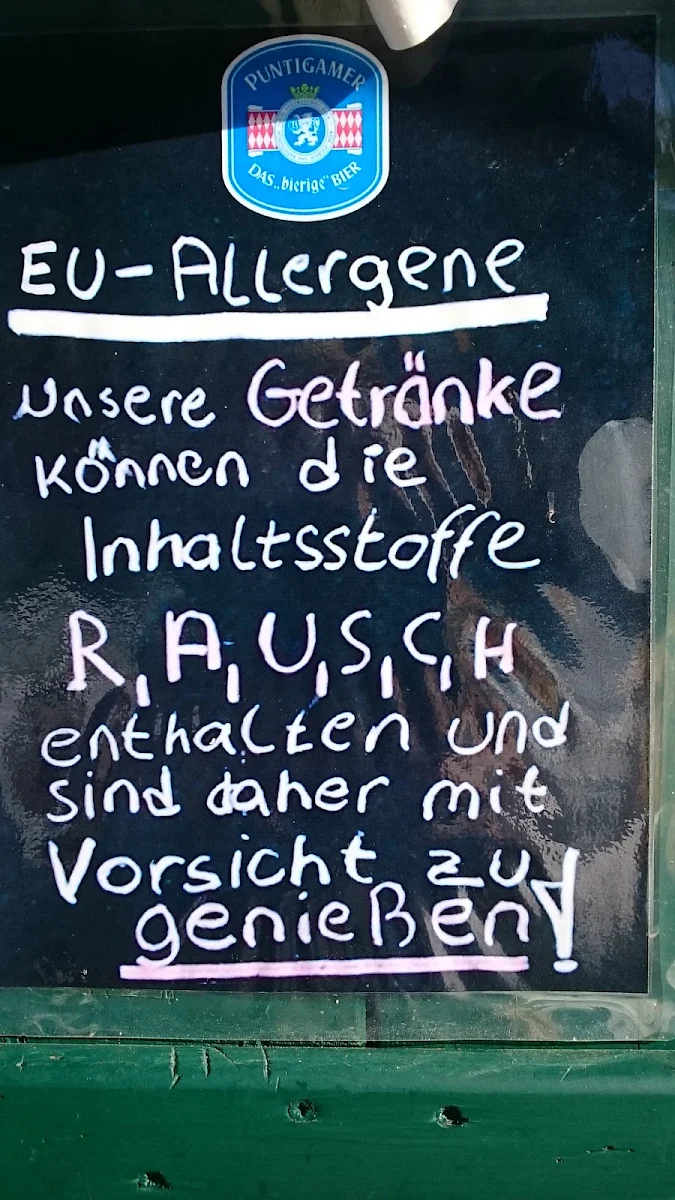 PUNTIGAMER
DAS „bierige" BIER
EU-Allergene
Unsere Getränke
können die
Inhaltsstoffe
R, A, U, S, C, H
enthalten und
sind daher mit
Vorsicht zu
genießen!